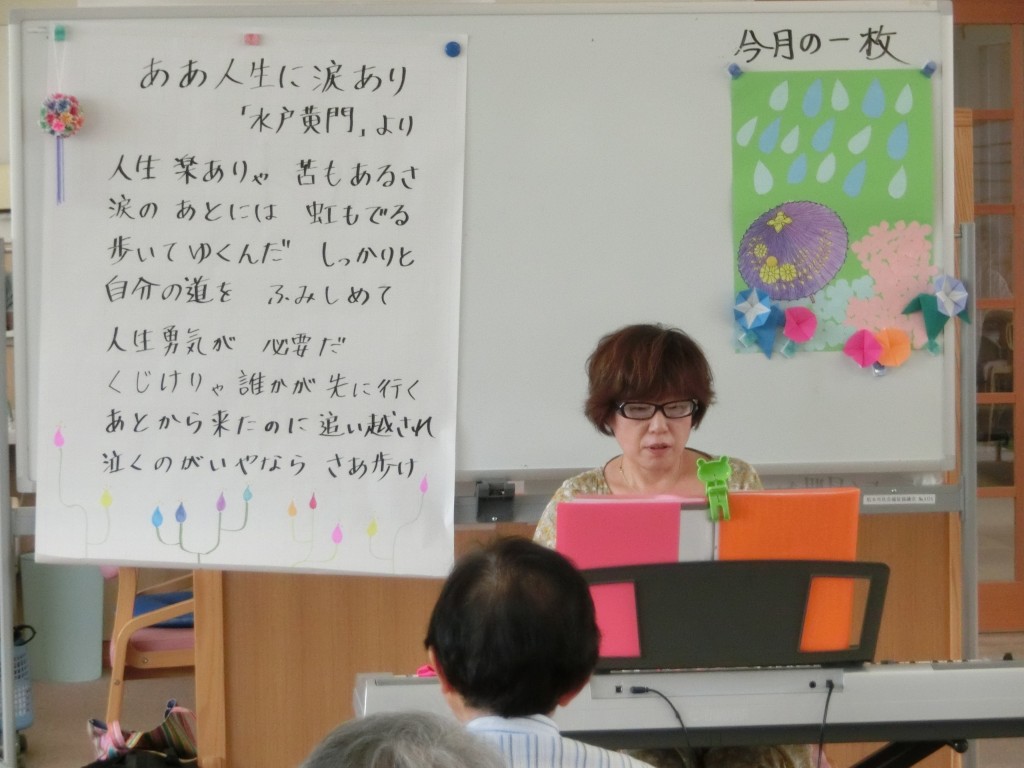 ああ人生に涙あり
「水戸黄門」より
人生 楽ありゃ 苦もあるさ
涙の あとには 虹もでる
歩いて ゆくんだ しっかりと
自分の道を ふみしめて
人生勇気が 必要だ
くじけりゃ 誰かが 先に行く
あとから来たのに 追い越され
泣くのがいやなら さあ歩け
今月の一枚